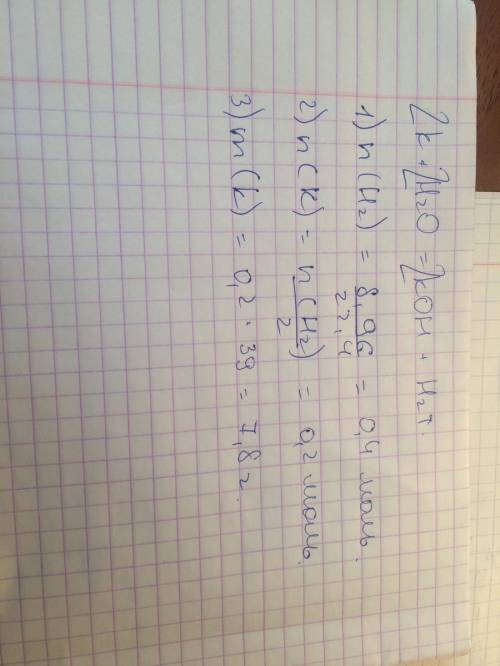 2K + 2H₂O = 2KOH + H₂↑.
1) n(H₂) = 8,96/22,4 = 0,4 моль.
2) n(K) = n(H₂)/2 = 0,2 моль.
3) m(K) = 0,2 · 39 = 7,8 г.